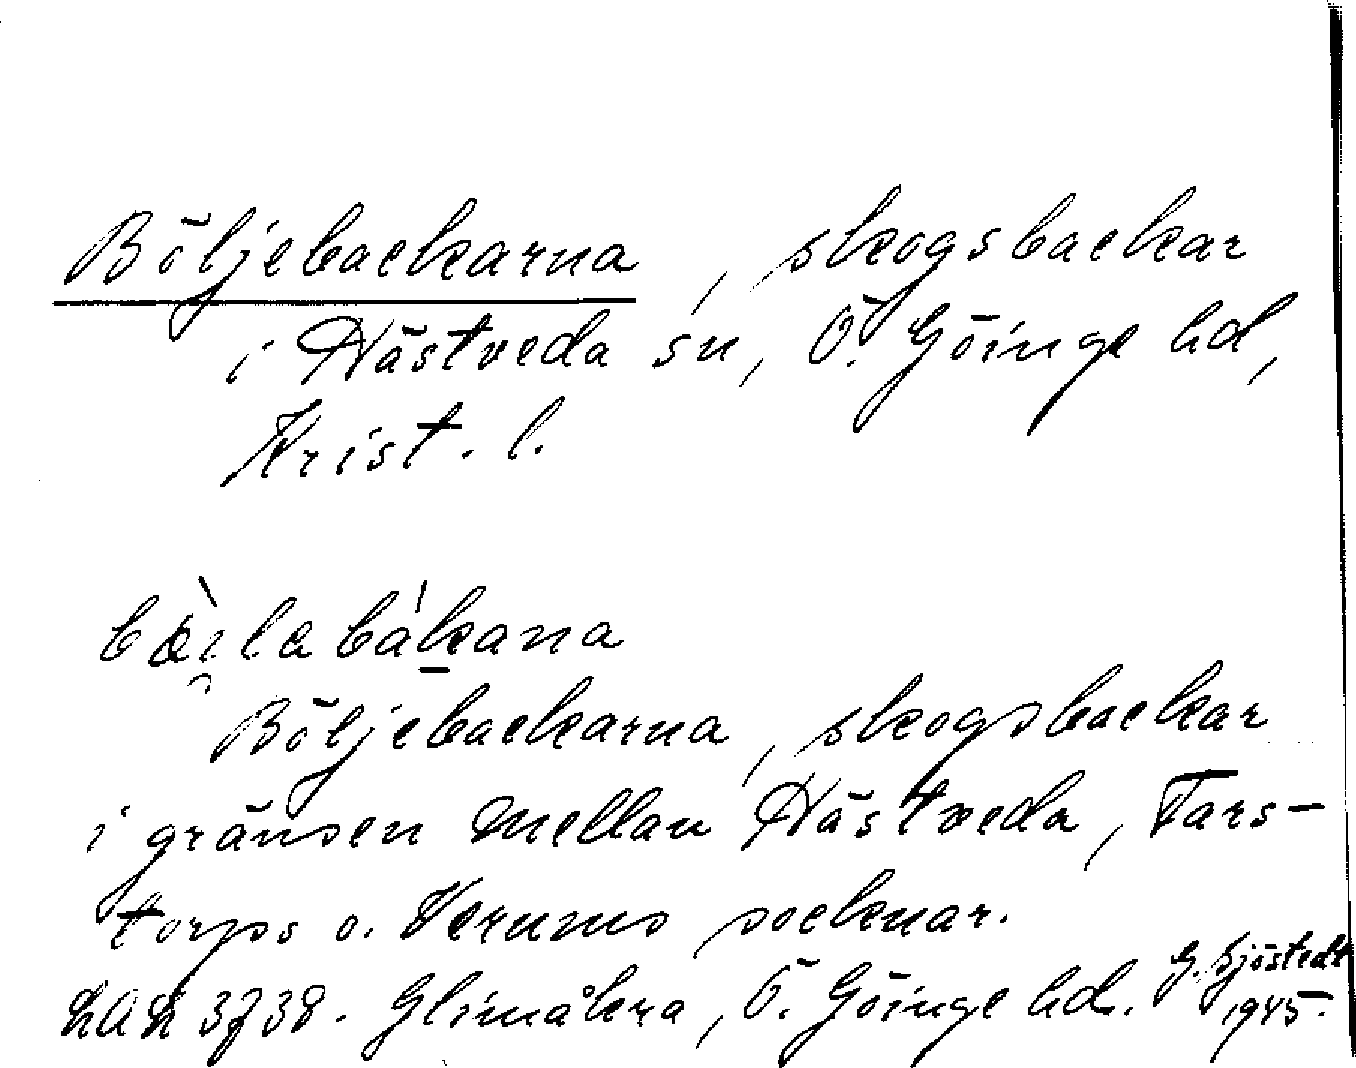 Böljebackarna, skogsbackar
i Hästveda sn, Ö. Göinge hd,
Krist. l.
Böljebackarna, skogsbackar
i gränsen mellan Hästveda, Fars-
torps o. Verums socknar.
LAL 3738. Glimåkra, Ö. Göinge hd. G. Sjöstedt
1945.